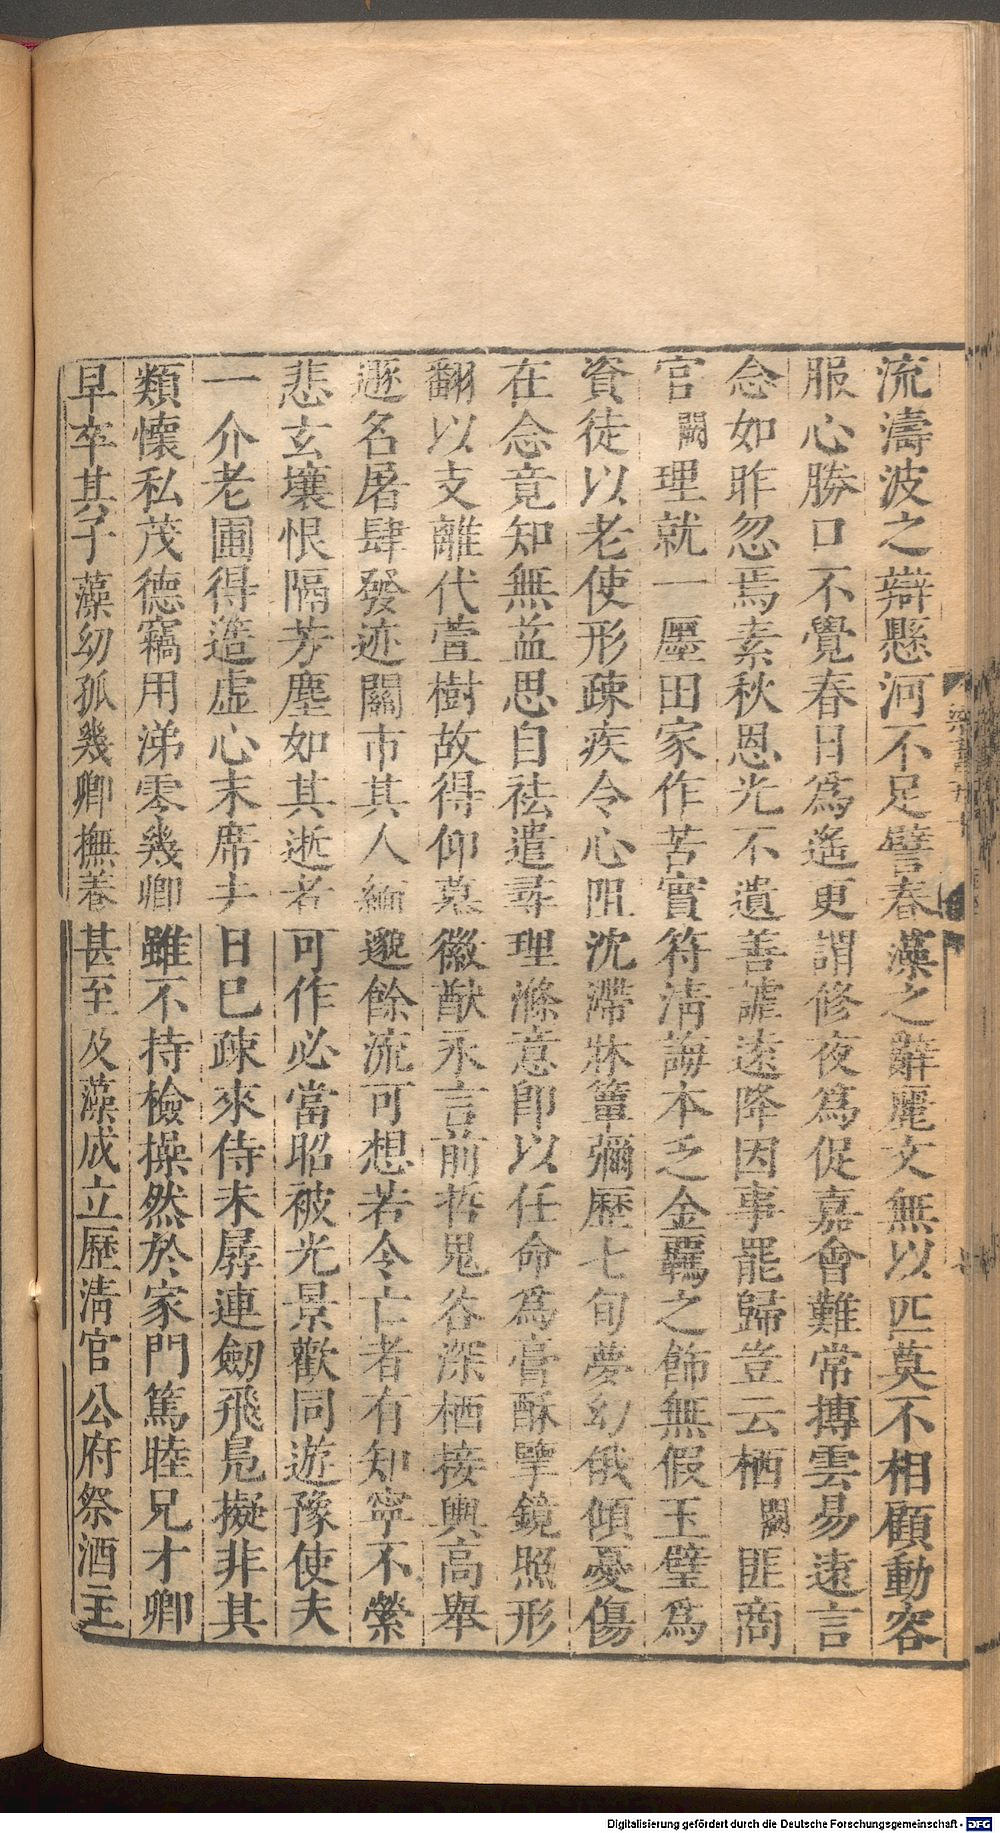 流濤波之辯懸河不足譬春藻之辭麗文無以匹莫不相顧動容
服心勝口不覺春日爲遙更謂修夜爲促嘉會難常摶雲易遠言
念如昨忽焉素秋恩光不遺善謔遠降因事罷歸豈云栖闕匪商
官闕理就一廛田家作苦實符淸誨本乏金羈之飾無假玉璧爲
資徒以老使形疎疾令心阻沈滯牀簟彌歷七旬夢幻俄傾憂傷
在念竟知無益思自祛遣尋理滌意卽以任命爲膏酥擥鏡照形
翻以支離代萱樹故得仰慕徽猷永言前哲鬼谷深栖接輿高舉
遯名屠肆發迹關市其人緬邈餘流可想若令亡者有知寧不縈
悲玄壤恨隔芳塵如其逝者可作必當昭被光景歡同遊豫使夫
一介老圃得簉虛心末席去日已疎來侍未孱連劒飛鳧擬非其
類懷私茂德竊用涕零幾卿雖不持檢操然於家門篤睦兄才卿
早卒其子藻幼孤幾卿撫養甚至及藻成立歷淸官公府祭酒主
Digitalisierung gefördert durch die Deutsche Forschungsgemeinschaft - DFG